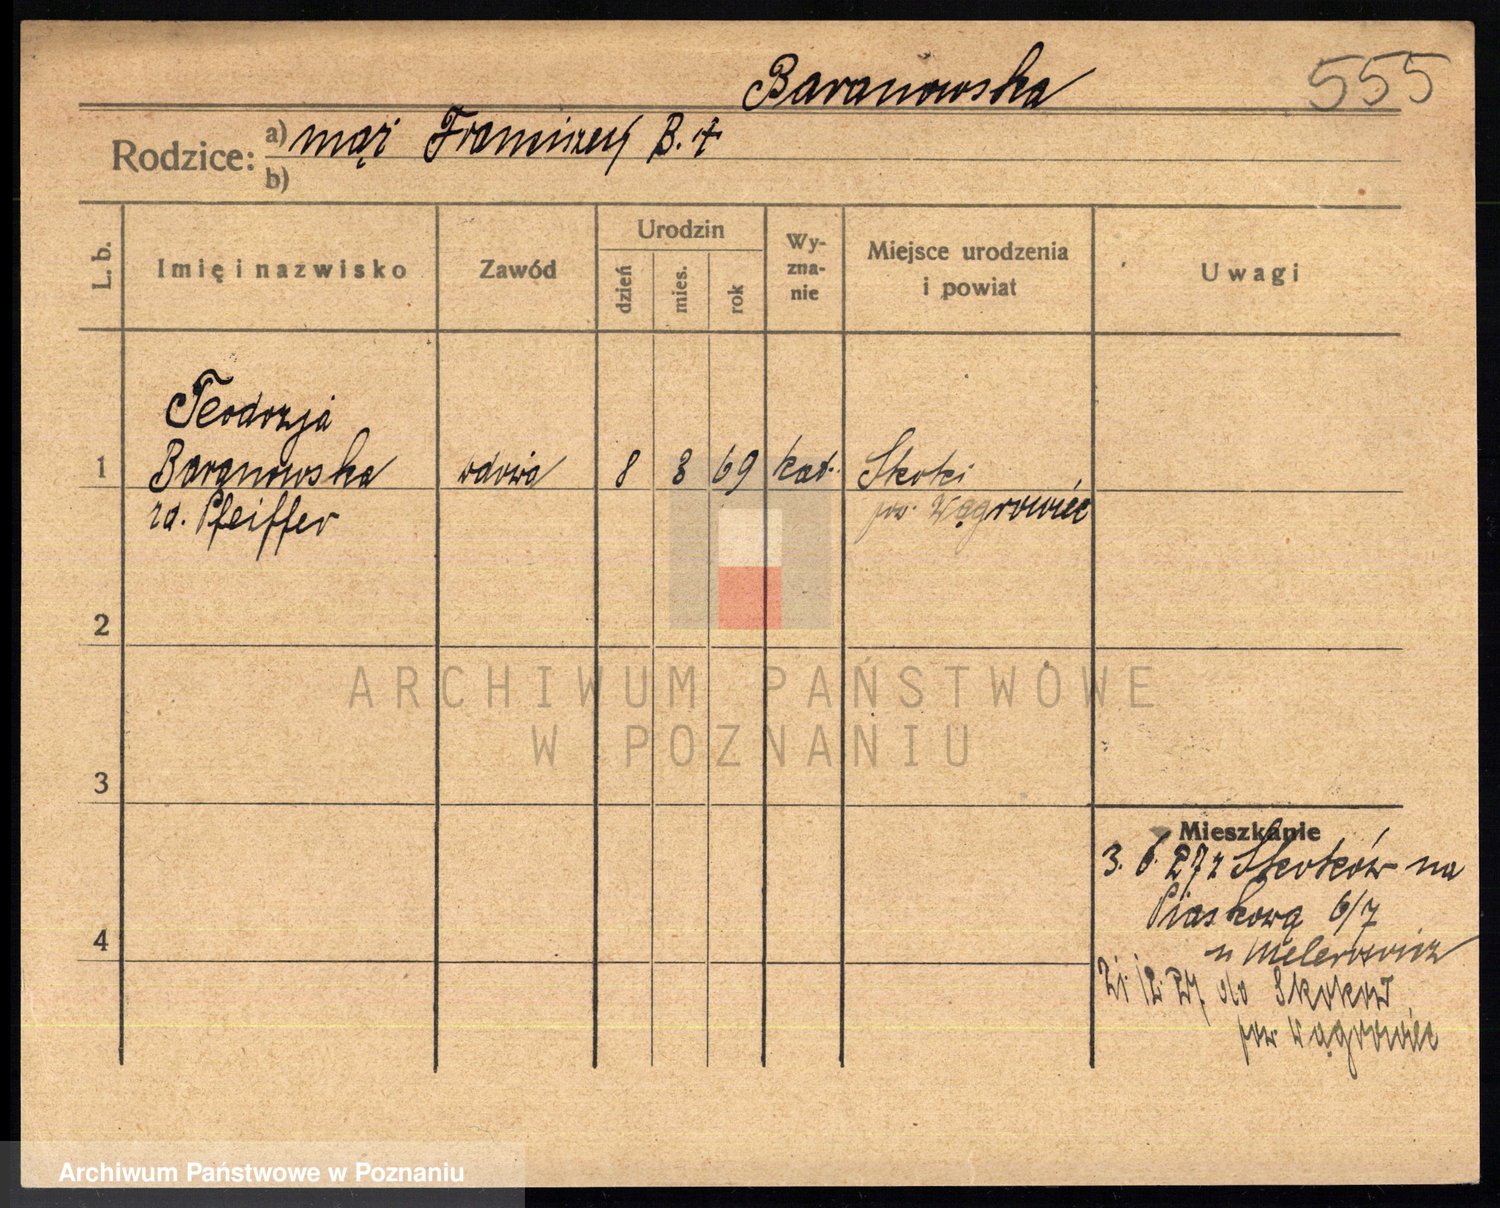 Baranowska
555
Rodzice:
a) mąż Franciszek B. +
b)
L. b.
Imię i nazwisko
Zawód
Urodzin
dzień
mies.
rok
Wy-
zna-
nie
Miejsce urodzenia
i powiat
Uwagi
Teodozja
1 Baranowska wdowa 8 3 69 kat. Skoki
zd. Pfeiffer pow. Wągrowiec
2
3
4
Mieszkanie
3. 6. 27 z Skoków na
Piaskową 6/7
u
21. 12. 27. do Skoków
pow Wągrowiec
ARCHIWUM PAŃSTWOWE
W POZNANIU
Archiwum Państwowe w Poznaniu